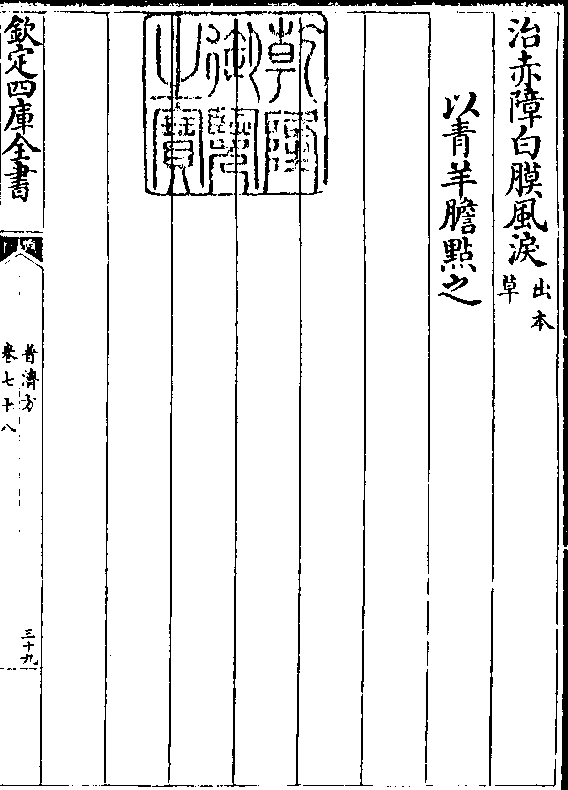 治赤障白膜風淚出本草
以青羊膽點之
乾隆御覽之寶
欽定四庫全書
普濟方
卷七十八
三十九